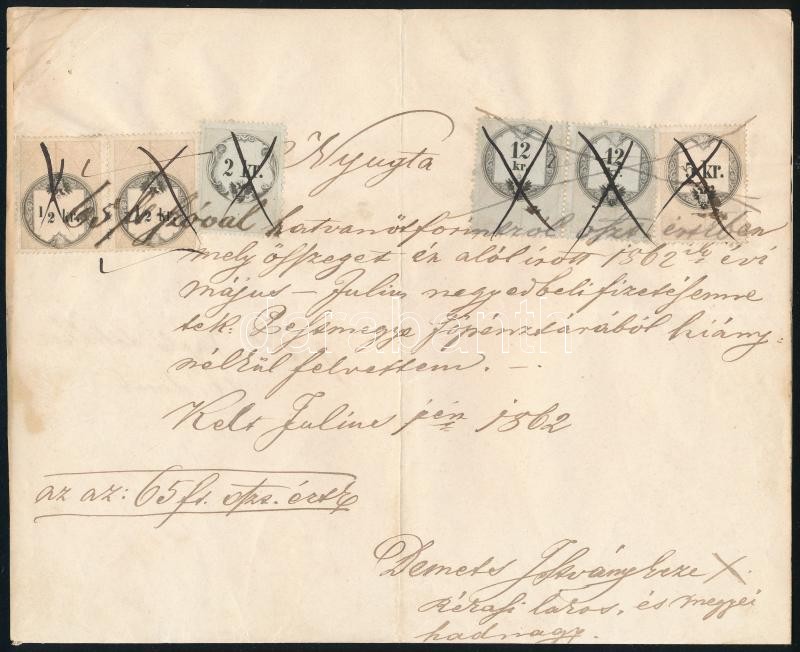 Nyugta
12 kr.
12
5 kr.
2 kr.
1/2 kr.
1/2 kr.
65 f szóval hatvanöt forintról oszt. értékben
mely összeget én alólírott 1862 évi
május – Julius negyedbeli fizetésemne
tek: Pestmegye főpénztárából hiány-
nélkül felvettem. –
Kelt Julius 1én 1862
az az: 65 ft. ért
Demets
és megyei
hadnagy.
darabanth